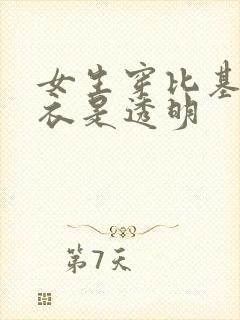 女生穿比基
衣是透明
第7天